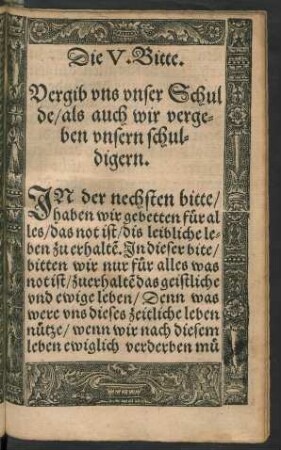 Die V. Bitte.
Vergib vns vnser Schul
de/als auch wir verge-
ben vnsern schul-
digern.
IN der nechsten bitte/
haben wir gebetten für al
les/das not ist/dis leibliche le-
ben zu erhaltē. In dieser bite/
bitten wir nur für alles was
not ist/zuerhaltē das geistliche
vnd ewige leben/ Denn was
were vns dieses zeitliche leben
nütze/ wenn wir nach diesem
leben ewiglich verderben mü